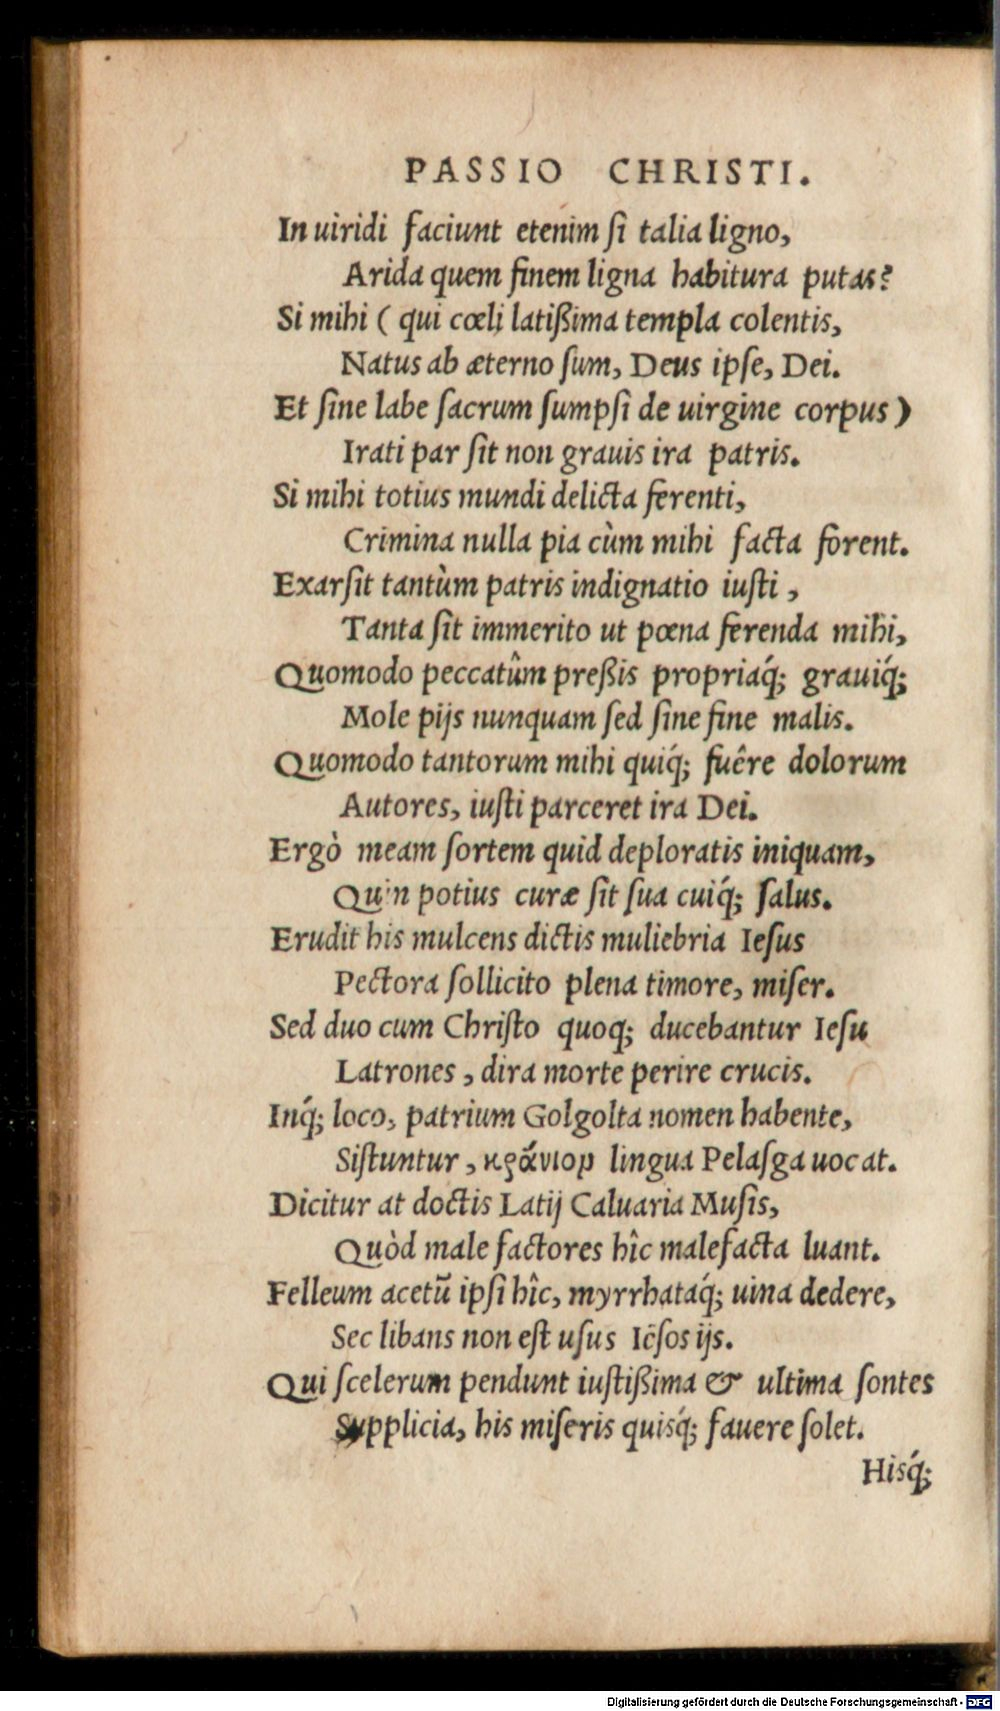 PASSIO CHRISTI.
In uiridi faciunt etenim ſi talia ligno,
Arida quem finem ligna habitura putas?
Si mihi ( qui cœli latißima templa colentis,
Natus ab æterno ſum, Deus ipſe, Dei.
Et ſine labe ſacrum ſumpſi de uirgine corpus )
Irati par ſit non grauis ira patris.
Si mihi totius mundi delicta ferenti,
Crimina nulla pia cùm mihi facta forent.
Exarſit tantùm patris indignatio iuſti ,
Tanta ſit immerito ut pœna ferenda mihi,
Quomodo peccatûm preßis propriaq́; grauiq́;
Mole pijs nunquam ſed ſine fine malis.
Quomodo tantorum mihi quiq́; fuêre dolorum
Autores, iuſti parceret ira Dei.
Ergò meam ſortem quid deploratis iniquam,
Quin potius curæ ſit ſua cuiq́; ſalus.
Erudit his mulcens dictis muliebria Ieſus
Pectora ſollicito plena timore, miſer.
Sed duo cum Chriſto quoq; ducebantur Ieſu
Latrones , dira morte perire crucis.
Inq́; loco, patrium Golgolta nomen habente,
Siſtuntur , κράνιον lingua Pelaſga uocat.
Dicitur at doctis Latij Caluaria Muſis,
Quòd male factores hîc malefacta luant.
Felleum acetũ ipſi hîc, myrrhataq́; uina dedere,
Sec libans non eſt uſus Ieſos ijs.
Qui ſcelerum pendunt iuſtißima & ultima ſontes
Supplicia, his miſeris quisq́; fauere ſolet.
Hisq́;
Digitalisierung gefördert durch die Deutsche Forschungsgemeinschaft - DFG